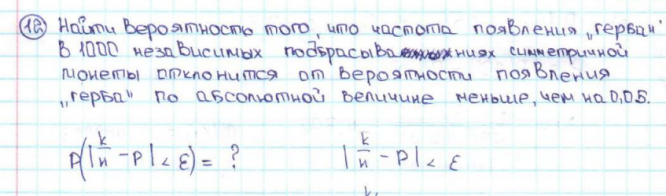 12 Найти вероятность того, что частота появления „герба"
в 1000 независимых подбрасываниях симметричной
монеты отклонится от вероятности появления
„герба" по абсолютной величине меньше, чем на 0,05.
P(|k/n - p| < ε) = ? |k/n - p| < ε